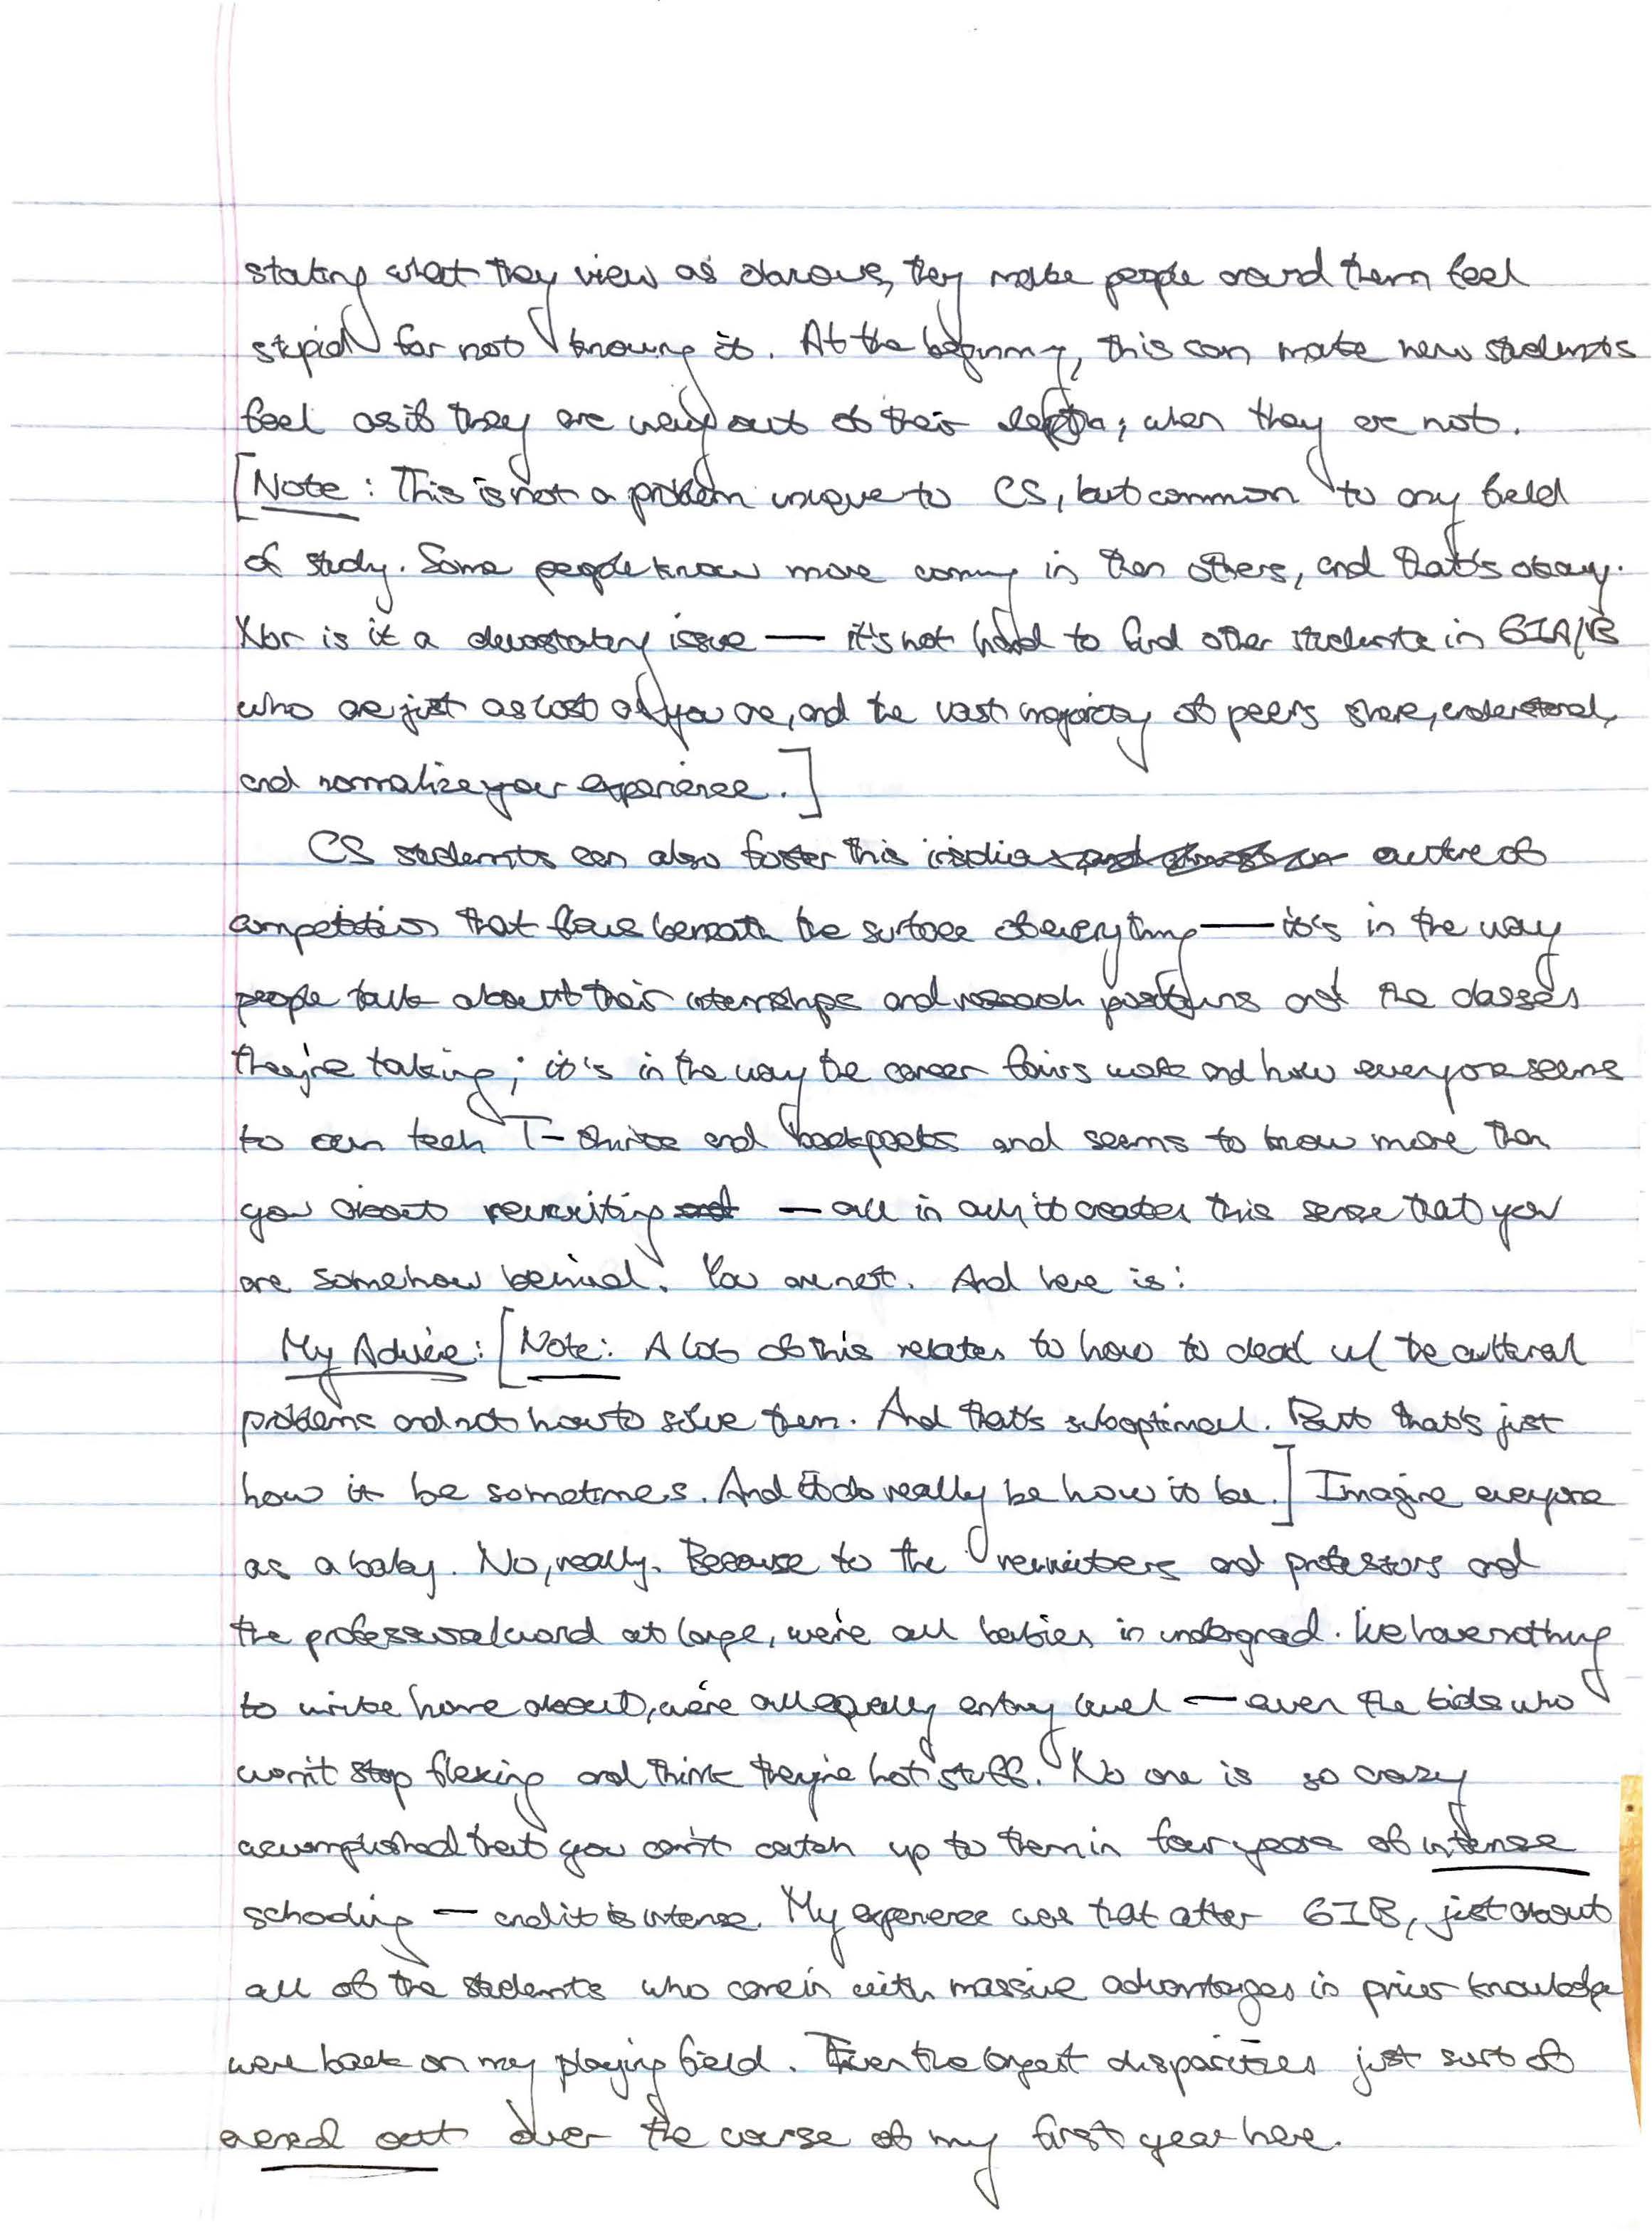 stating what they view as obvious, they make people around them feel
stupid for not knowing it. At the beginning, this can make new students
feel as if they are way out of their depth, when they are not.
[Note: This is not a problem unique to CS, but common to any field
of study. Some people know more coming in than others, and that's okay.
Nor is it a devastating issue — it's not hard to find other students in 61A/B
who are just as lost as you are, and the vast majority of peers share, understand,
and normalize your experience.]
CS students can also foster this culture of
competition that flows beneath the surface of everything — it's in the way
people talk about their internships and research positions and the classes
they're taking; it's in the way the career fairs work and how everyone seems
to own tech T-shirts and backpacks and seems to know more than
you about recruiting — all in all, it creates this sense that you
are somehow behind. You are not. And here is:
My Advice: [Note: A lot of this relates to how to deal w/ the cultural
problems and not how to solve them. And that's suboptimal. But that's just
how it be sometimes. And it do really be how it be.] Imagine everyone
as a baby. No, really. Because to the recruiters and professors and
the professional world at large, we're all babies in undergrad. We have nothing
to write home about, we're all equally entry level — even the kids who
won't stop flexing and think they're hot stuff. No one is so crazy
accomplished that you can't catch up to them in four years of intense
schooling — and it is intense. My experience was that after 61B, just about
all of the students who came in with massive advantages in prior knowledge
were back on my playing field. Even the largest disparities just sort of
evened out over the course of my first year here.